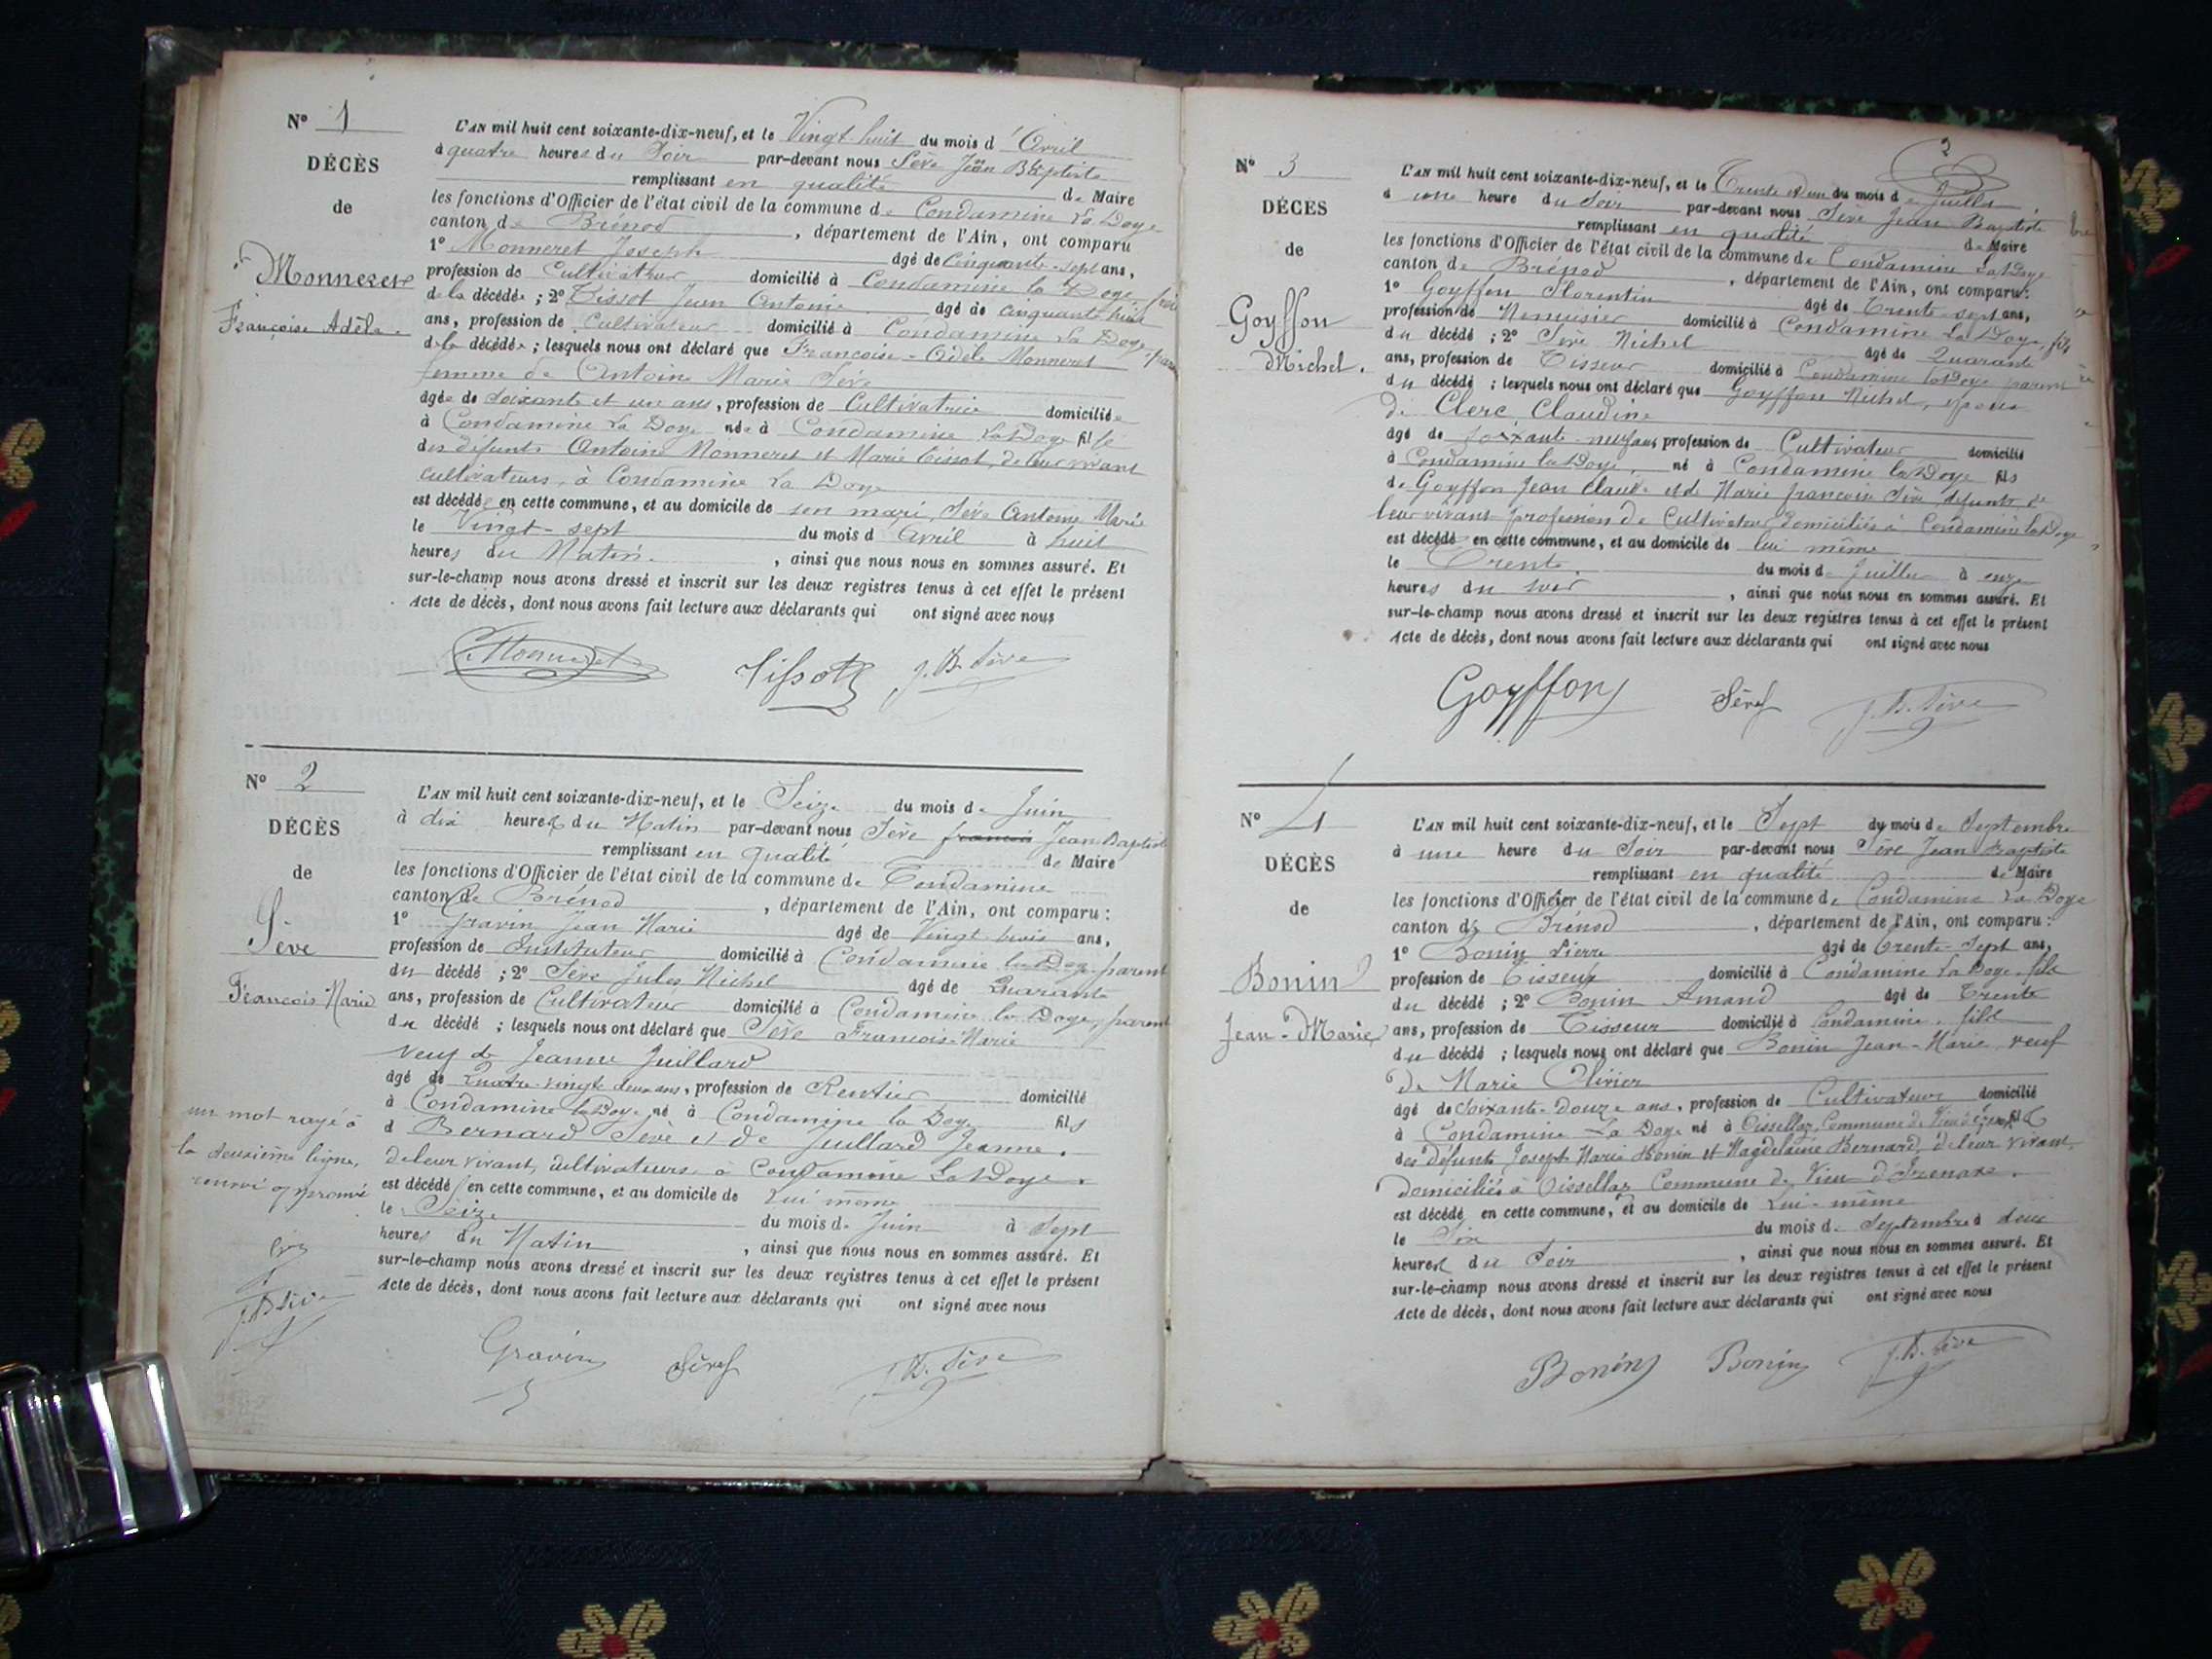 N° 1
DÉCÈS
de
Monneret
Françoise Adèle.
L'AN mil huit cent soixante-dix-neuf, et le Vingt-huit du mois d'Avril
à quatre heures du Soir par-devant nous Sève Jean Baptiste
remplissant en qualité de Maire
les fonctions d'Officier de l'état civil de la commune de Condamine La Doye
canton de Brénod, département de l'Ain, ont comparu
1° Monneret Joseph âgé de Cinquante-sept ans,
profession de Cultivateur domicilié à Condamine la Doye, frère
de la décédée ; 2° Tissot Jean Antoine âgé de cinquante huit
ans, profession de Cultivateur domicilié à Condamine La Doye, parent
de la décédée ; lesquels nous ont déclaré que Françoise-Adèle Monneret
femme de Antoine Marie Sève
âgée de soixante et un ans, profession de Cultivatrice domiciliée
à Condamine La Doye née à Condamine La Doye fille
des défunts Antoine Monneret et Marie Tissot, de leur vivant
cultivateurs, à Condamine La Doye
est décédée en cette commune, et au domicile de son mari, Sève Antoine Marie
le Vingt-sept du mois d'Avril à huit
heures du Matin, ainsi que nous nous en sommes assuré. Et
sur-le-champ nous avons dressé et inscrit sur les deux registres tenus à cet effet le présent
Acte de décès, dont nous avons fait lecture aux déclarants qui ont signé avec nous
Monneret Tissot J. B. Sève
N° 2
DÉCÈS
de
Sève
François Marie
un mot rayé à
la deuxième ligne,
renvoi approuvé
J. B. Sève
L'AN mil huit cent soixante-dix-neuf, et le Seize du mois de Juin
à dix heures du Matin par-devant nous Sève françois Jean Baptiste
remplissant en qualité de Maire
les fonctions d'Officier de l'état civil de la commune de Condamine
canton de Brénod, département de l'Ain, ont comparu :
1° Gravin Jean Marie âgé de Vingt-trois ans,
profession de Instituteur domicilié à Condamine la Doye, parent
du décédé ; 2° Sève Jules Michel âgé de Quarante
ans, profession de Cultivateur domicilié à Condamine la Doye, parent
du décédé ; lesquels nous ont déclaré que Sève François-Marie
veuf de Jeanne Juillard
âgé de Quatre-vingt deux ans, profession de Rentier domicilié
à Condamine la Doye né à Condamine la Doye fils
d Bernard Sève et de Juillard Jeanne.
de leur vivant, cultivateurs à Condamine La Doye.
est décédé en cette commune, et au domicile de Lui même
le Seize du mois de Juin à Sept
heures du Matin, ainsi que nous nous en sommes assuré. Et
sur-le-champ nous avons dressé et inscrit sur les deux registres tenus à cet effet le présent
Acte de décès, dont nous avons fait lecture aux déclarants qui ont signé avec nous
Gravin Sève J. B. Sève
2
N° 3
DÉCÈS
de
Goyffon
Michel.
L'AN mil huit cent soixante-dix-neuf, et le Trente et un du mois de Juillet
à une heure du Soir par-devant nous Sève Jean Baptiste
remplissant en qualité de Maire
les fonctions d'Officier de l'état civil de la commune de Condamine La Doye
canton de Brénod, département de l'Ain, ont comparu :
1° Goyffon Florentin âgé de Trente-sept ans,
profession de Menuisier domicilié à Condamine La Doye, fils
du décédé ; 2° Sève Michel âgé de Quarante
ans, profession de Tisseur domicilié à Condamine La Doye parent
du décédé ; lesquels nous ont déclaré que Goyffon Michel, époux
de Clerc Claudine
âgé de soixante-neuf ans, profession de Cultivateur domicilié
à Condamine la Doye, né à Condamine la Doye fils
de Goyffon Jean Claude et de Marie françoise Sève, défunts de
leur vivant profession de Cultivateur domiciliés à Condamine la Doye
est décédé en cette commune, et au domicile de lui même
le Trente du mois de Juillet à onze
heures du soir, ainsi que nous nous en sommes assuré. Et
sur-le-champ nous avons dressé et inscrit sur les deux registres tenus à cet effet le présent
Acte de décès, dont nous avons fait lecture aux déclarants qui ont signé avec nous
Goyffon Sève J. B. Sève
N° 4
DÉCÈS
de
Bonin
Jean-Marie
L'AN mil huit cent soixante-dix-neuf, et le Sept du mois de Septembre
à une heure du Soir par-devant nous Sève Jean Baptiste
remplissant en qualité de Maire
les fonctions d'Officier de l'état civil de la commune de Condamine La Doye
canton de Brénod, département de l'Ain, ont comparu :
1° Bonin Pierre âgé de Trente-Sept ans,
profession de Tisseur domicilié à Condamine La Doye, fils
du décédé ; 2° Bonin Amand âgé de Trente
ans, profession de Tisseur domicilié à Condamine, fils
du décédé ; lesquels nous ont déclaré que Bonin Jean-Marie veuf
de Marie Olivier
âgé de soixante-douze ans, profession de Cultivateur domicilié
à Condamine La Doye né à Oissellaz, Commune de Vieu d'Izenave fils
des défunts Joseph Marie Bonin et Magdelaine Bernard, de leur vivant,
domiciliés à Oissellaz Commune de Vieu d'Izenave.
est décédé en cette commune, et au domicile de Lui-même
le Six du mois de Septembre à deux
heures du Soir, ainsi que nous nous en sommes assuré. Et
sur-le-champ nous avons dressé et inscrit sur les deux registres tenus à cet effet le présent
Acte de décès, dont nous avons fait lecture aux déclarants qui ont signé avec nous
Bonin Bonin J. B. Sève